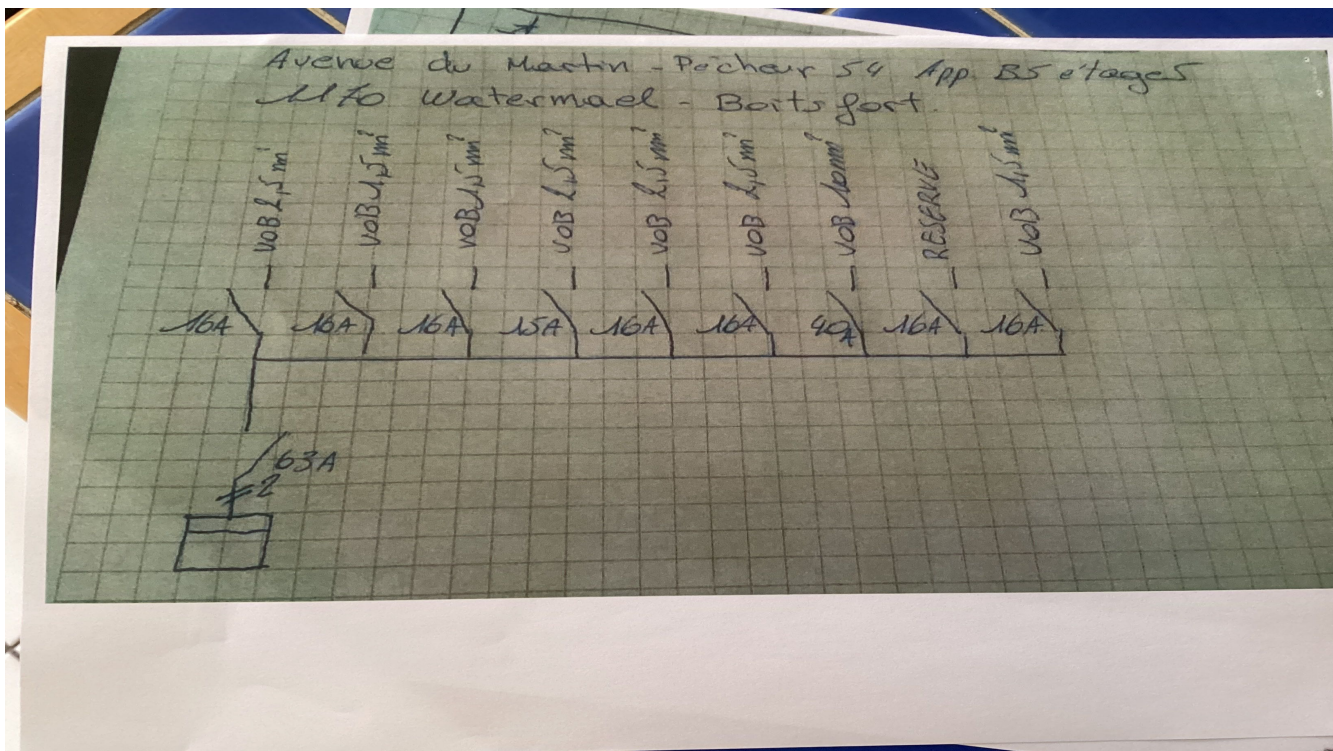 Avenue du Martin-Pêcheur 54 App B5 étage5
1170 Watermael-Boitsfort.
VOB 2,5 m²
VOB 1,5 m²
VOB 1,5 m²
VOB 2,5 m²
VOB 2,5 m²
VOB 2,5 m²
VOB 10mm²
RESERVE
VOB 1,5 m²
16A 16A 16A 15A 16A 16A 40A 16A 16A
63A
2